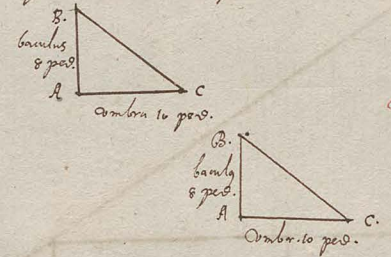 B.
baculus
8 ped.
A
C
Vmbra 10 ped.
B.
baculus
8 ped.
A
C.
Vmbr. 10 ped.